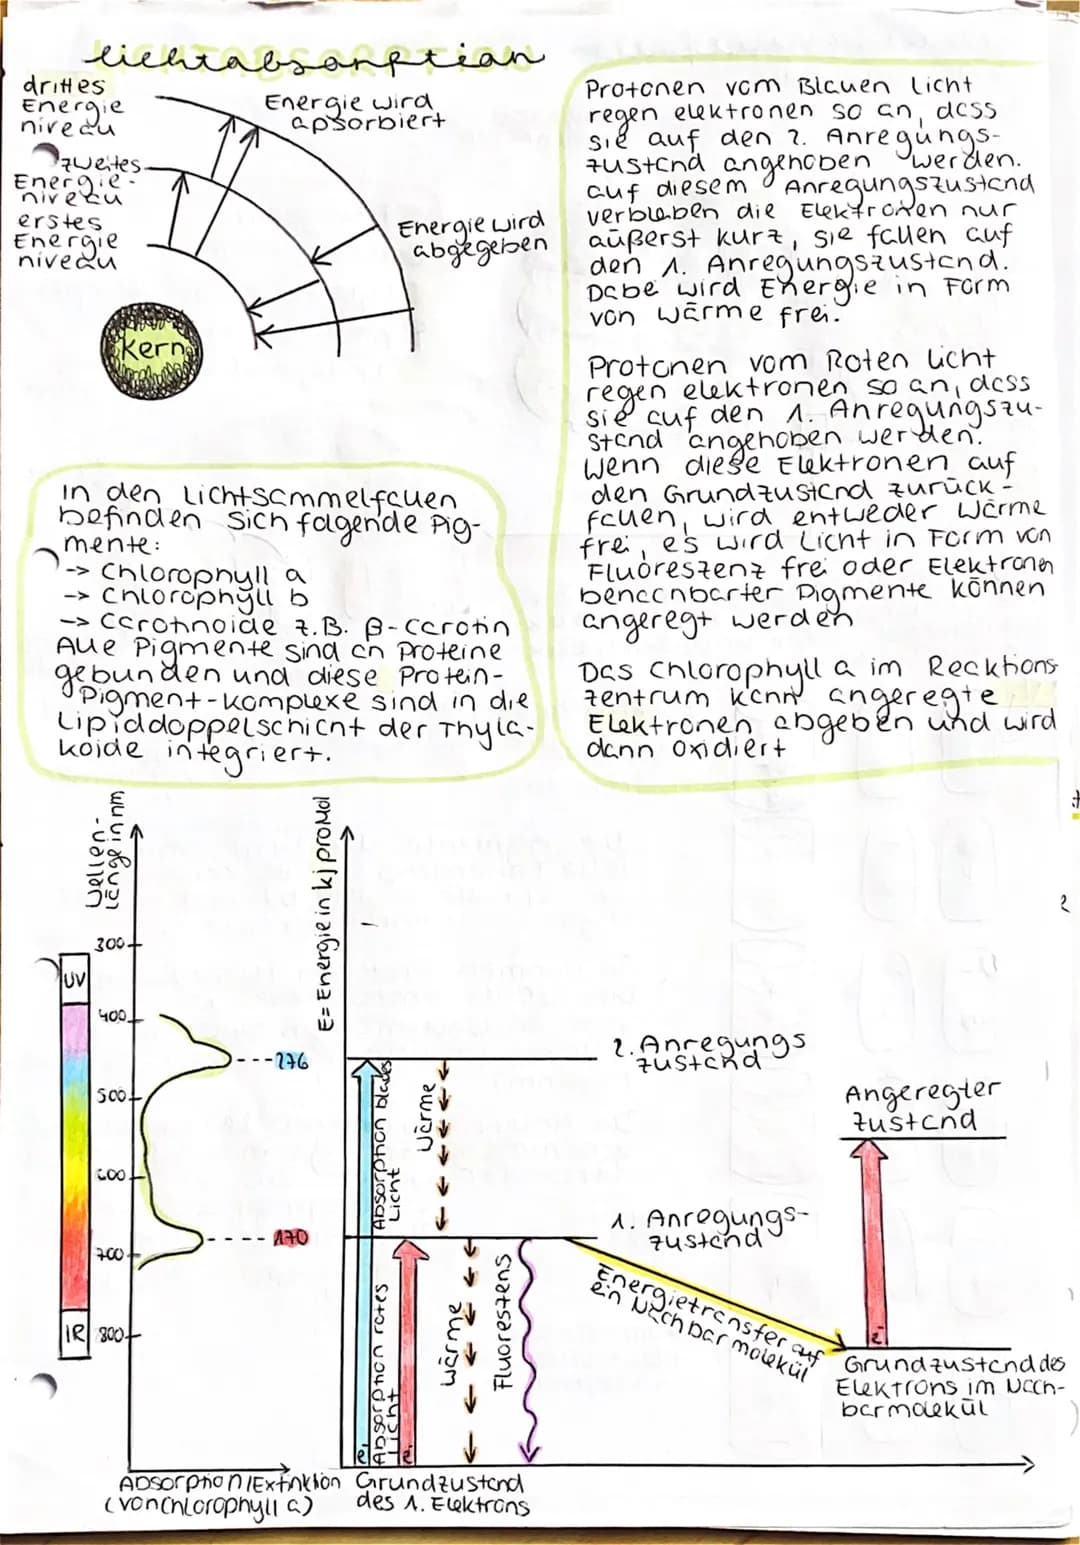 lichtabsorption
drittes
Energie
niveau
zweites
Energie-
niveau
erstes
Energie
niveau
Energie wird
apsorbiert
Energie wird
abgegeben
Kern
Protonen vom Blauen Licht
regen elektronen so an, dass
sie auf den 2. Anregungs-
zustand angehoben werden.
auf diesem Anregungszustand
verbleben die Elektronen nur
äußerst kurz, sie fallen auf
den 1. Anregungszustand.
Dabe wird Energie in Form
von Wärme frei.
Protonen vom Roten Licht
regen elektronen so an, dass
sie auf den 1. Anregungszu-
stand angehoben werden.
Wenn diese Elektronen auf
den Grundzustand zurück-
fallen, wird entweder Wärme
frei, es wird Licht in Form von
Fluoreszenz frei oder Elektronen
benachbarter Pigmente können
angeregt werden
Das Chlorophyll a im Recktions-
zentrum kann angeregte
Elektronen abgeben und wird
dann oxidiert
In den Lichtsammelfallen
befinden sich folgende Pig-
mente:
-> Chlorophyll a
-> Chlorophyll b
-> Carotinoide z.B. β-Carotin
Alle Pigmente sind an Proteine
gebunden und diese Protein-
Pigment-komplexe sind in die
Lipiddoppelschicht der Thyla-
koide integriert.
Wellen-
länge in nm
UV
IR
300
400
500
600
700
800
276
170
Absorption/Extinktion
(von Chlorophyll a)
E= Energie in kj pro Mol
Absorption blaues
Licht
Wärme
2. Anregungs
zustand
1. Anregungs-
zustand
Absorption rotes
Licht
Wärme
Fluorestens
e
e
Energietransfer auf
ein Nachbarmolekül
Angeregter
Zustand
e
Grundzustand des
Elektrons im Nach-
barmolekül
Grundzustand
des 1. Elektrons